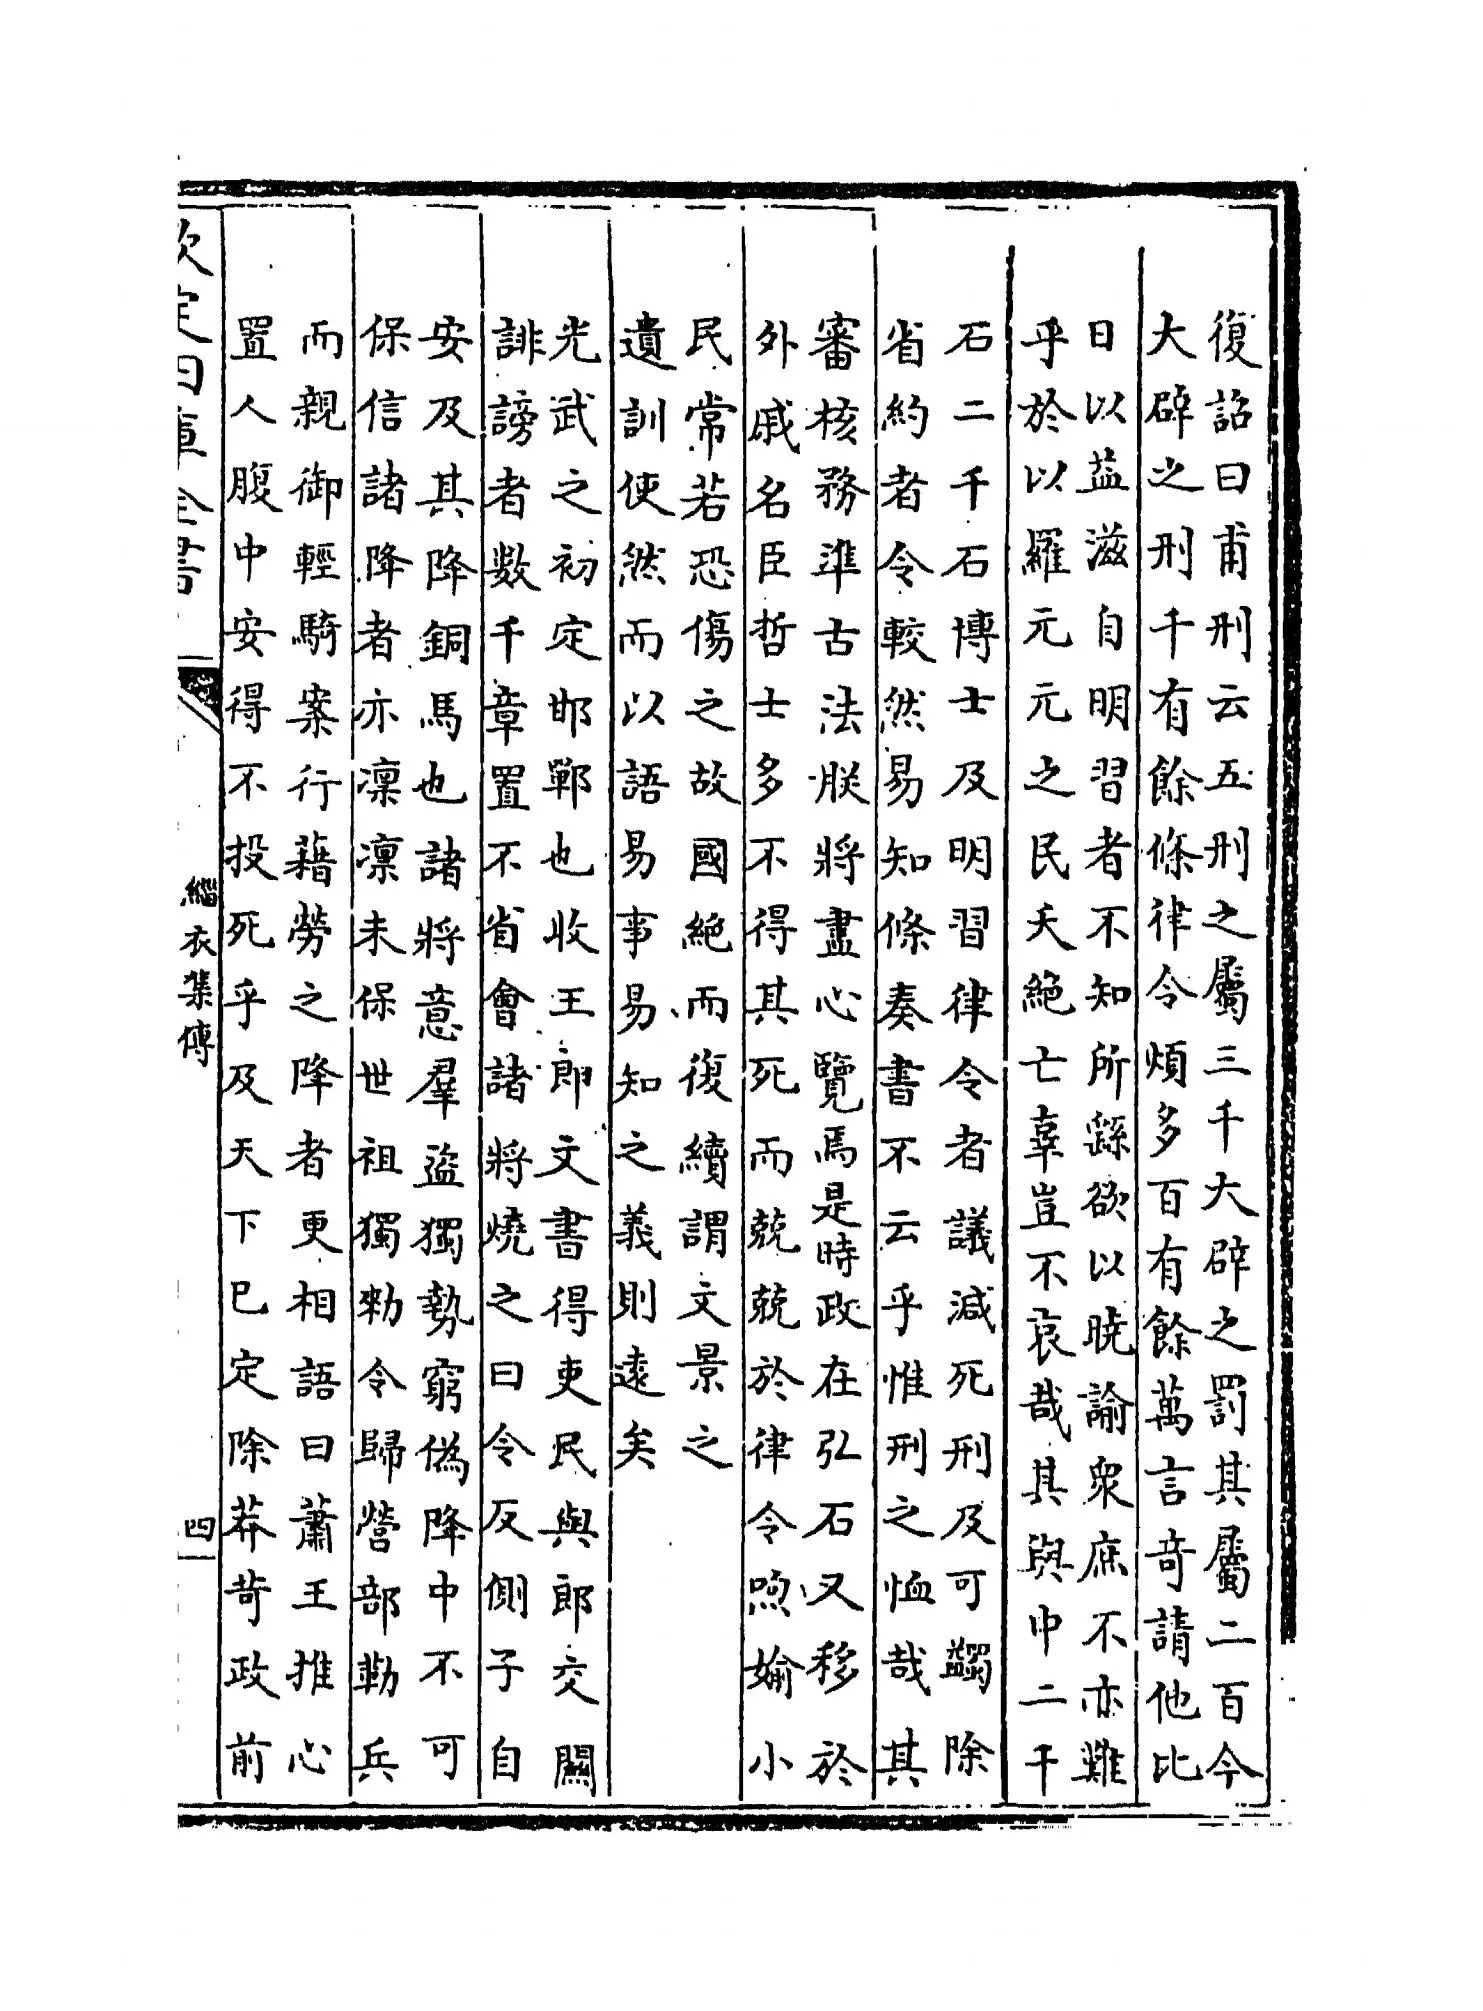 復詔曰甫刑云五刑之屬三千大辟之罰其屬二百今
大辟之刑千有餘條律令煩多百有餘萬言奇請他比
日以益滋自明習者不知所繇欲以曉諭衆庶不亦難
乎於以羅元元之民夭絶亡辜豈不哀哉其與中二千
石二千石博士及明習律令者議減死刑及可蠲除
省約者令較然易知條奏書不云乎惟刑之恤哉其
審核務準古法朕將盡心覽焉是時政在弘石又移於
外戚名臣哲士多不得其死而兢兢於律令呴媮小
民常若恐傷之故國絶而復續謂文景之
遺訓使然而以語易事易知之義則逺矣
光武之初定邯鄲也收王郎文書得吏民與郎交關
誹謗者数千章置不省會諸將燒之曰令反側子自
安及其降銅馬也諸將意羣盜獨勢窮偽降中不可
保信諸降者亦凜凜未保世祖獨勑令歸營部勒兵
而親御輕騎案行藉勞之降者更相語曰蕭王推心
置人腹中安得不投死乎及天下已定除莽苛政前
欽定四庫全書
緇衣集傳
四